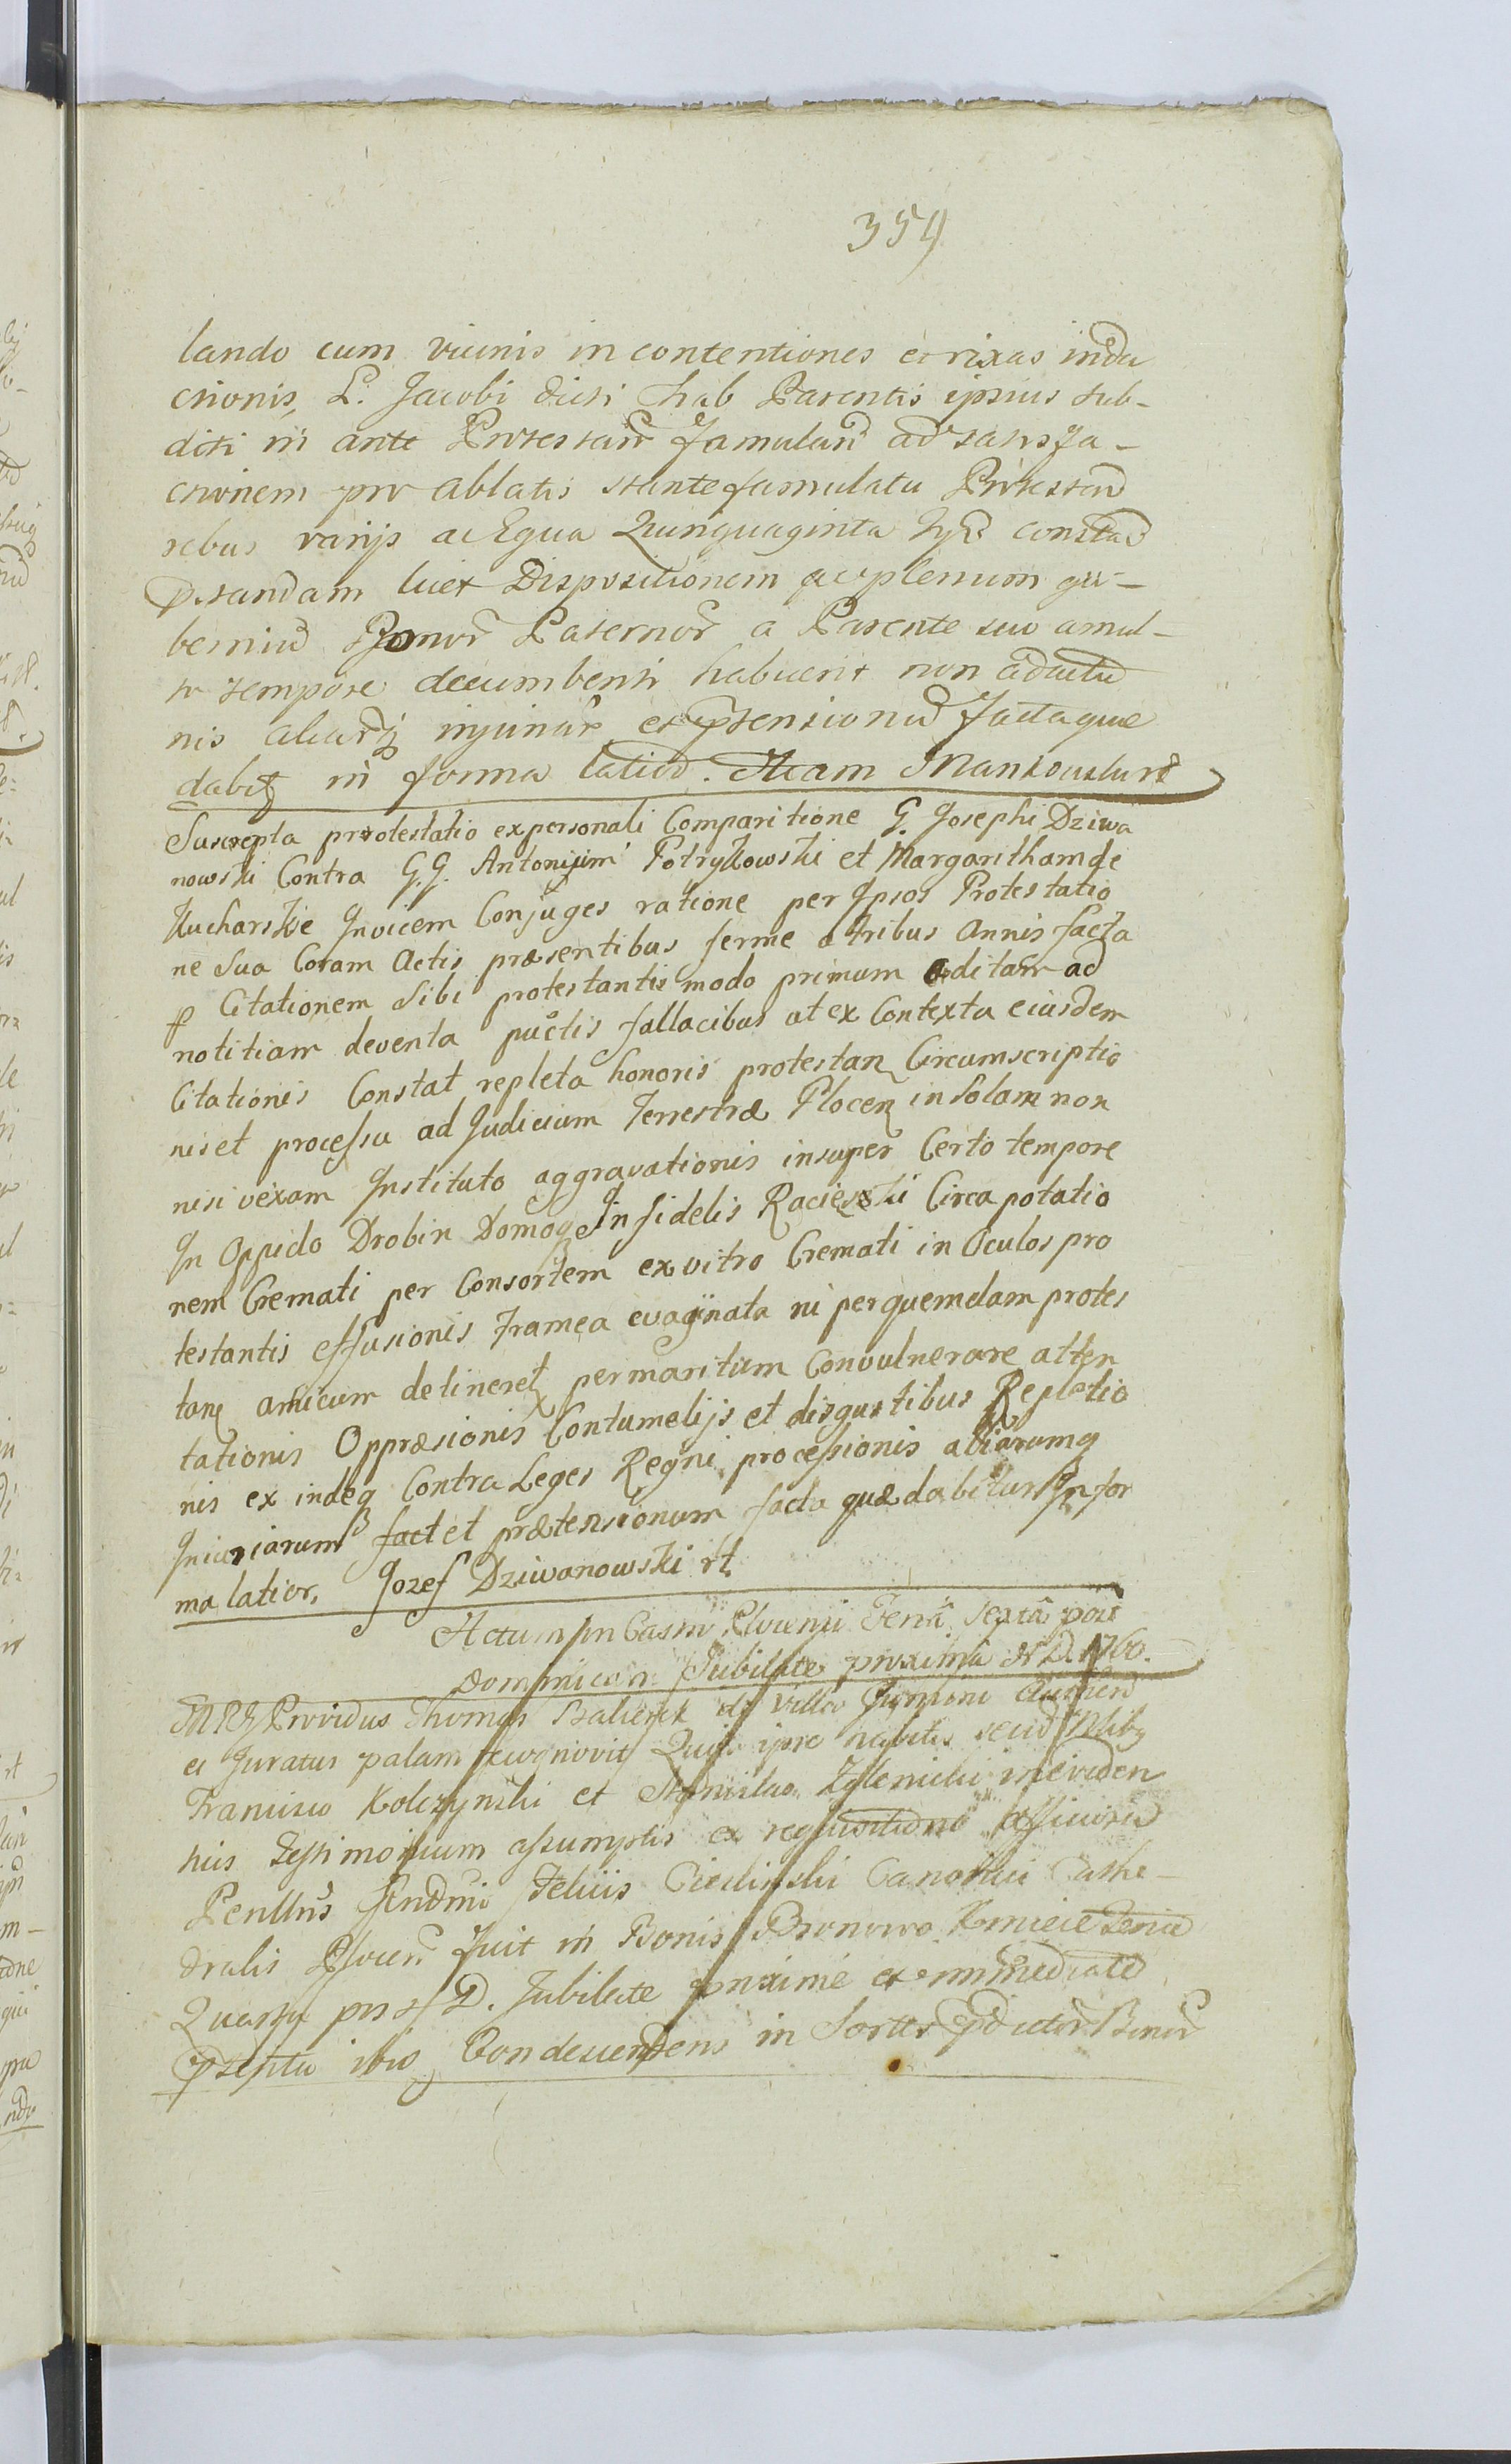 354
lando cum vicinis in contentiones et rixas indu
ctionis, L. Jacobi dicti Chab Parentis ipsius sub-
diti in ante Protestan famulan ad satisfa-
ctionem pro ablatis stante famulatu Protestan
rebus varijs ac Equa Quinquaginta constan
licet Dispositionem ac plenum gu-
bernium Bonor Paternor a Parente suo a mul-
to tempore decumbenti habuerit non
nis aliarq injuriar et ptensionum facta quae
dabit in forma latiori. Adam Mankowski
Suscepta protestatio ex personali Comparitione G. Josephi Dziwa
nowski Contra G.G. Antonijum Potrykowski et Margaritham de
Kucharskie Invicem Conjuges ratione per Ipsos Protestatio
ne Sua Coram Actis præsentibus ferme a tribus Annis facta
p Citationem Sibi protestanti modo primum editam ad
notitiam deventa puctis fallacibus ut ex Contextu eiusdem
Citationis Constat repleta honoris protestan Circumscriptio
nis et processu ad Judicium Terrestræ Plocen in Solam non
nisi vexam Instituto aggravationis insuper Certo tempore
In Oppido Drobin Domoq Infidelis Racięski Circa potatio
nem Cremati per Consortem ex vitro Cremati in Oculos pro
testantis effusionis Framea evaginata ni per quemdam protes
tan amicum detineret per maritum Convulnerare atten
tationis Oppræsionis Contumelijs et disgustibus Repletio
nis ex indeq Contra Leges Regni processionis aliarumq
Iniuriarum fact et prætensionum facta quæ dabitur In for
ma latior. Jozef Dziwanowski rt
Actum in Castro Plocensi Feria Sexta post
Dominicam Jubilate proxima A D. 1760.
Providus Thomas de Villa
et Juratus palam recognovit Quia ipse nobilis
Francisco Kolczynski et Stanislao Zglenicki in eviden
tius Testimonium assumptis ex requisitione
Felicis Cieclinski Canonici Cathe-
dralis Plocen fuit in Bonis Bronowo Kmiece Feria
Quarta post D. Jubilate proxime et immediate
ibiq Condescendens in Sortes Bonor